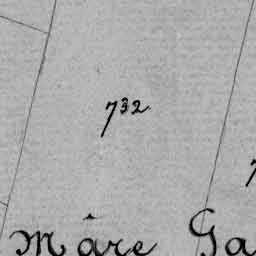 732
Mâre Ga